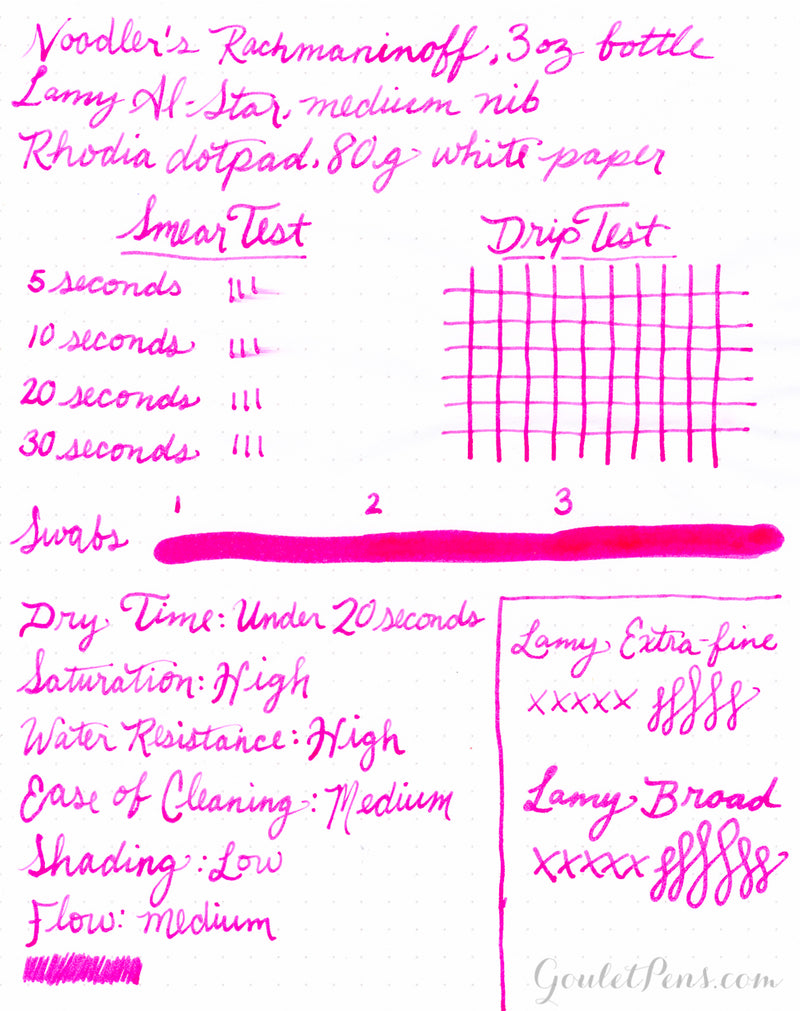 Noodler's Rachmaninoff, 3 oz bottle
Lamy Al-Star, medium nib
Rhodia dotpad, 80g white paper
Smear Test
5 seconds
10 seconds
20 seconds
30 seconds
Drip Test
1 2 3
Swabs
Dry Time: Under 20 seconds
Saturation: High
Water Resistance: High
Ease of Cleaning: Medium
Shading: Low
Flow: medium
Lamy Extra-fine
xxxxx
Lamy Broad
xxxxx
GouletPens.com